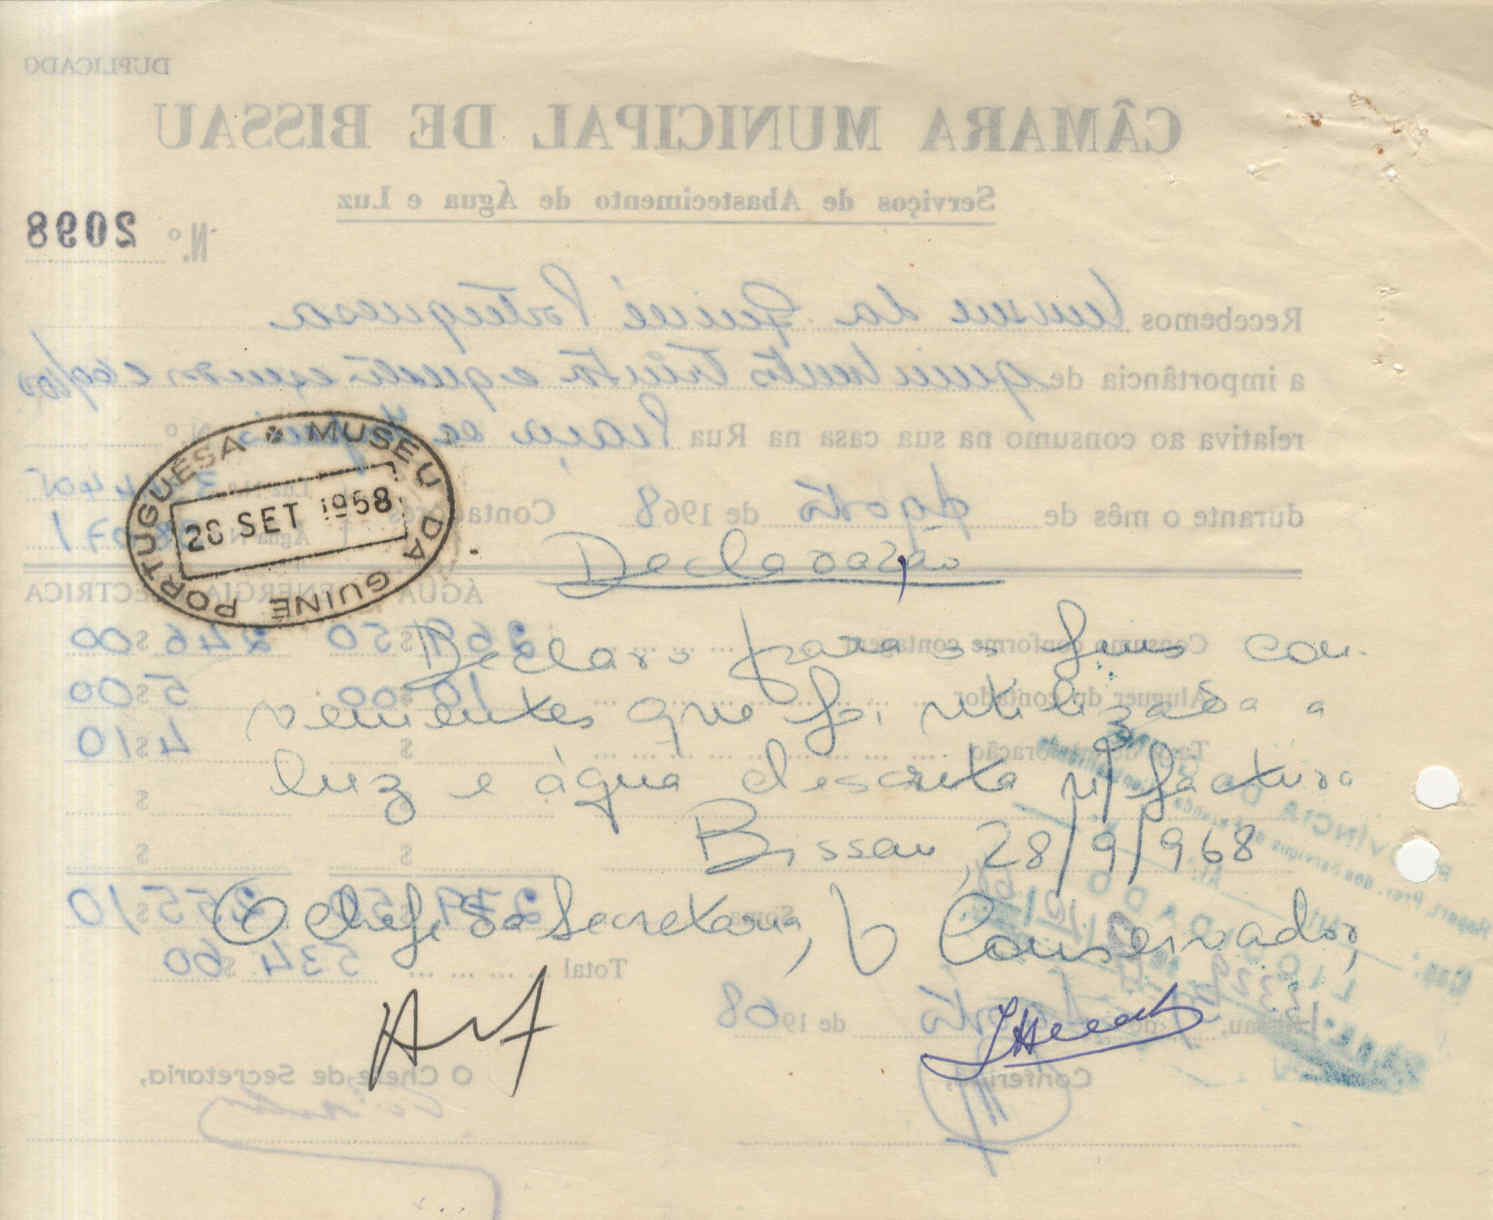 DUPLICADO
CÂMARA MUNICIPAL DE BISSAU
Serviços de Abastecimento de Água e Luz
N.º 2098
Recebemos Museu da Guiné Portuguesa
a importância de quinhentos trinta e quatro escudos
relativa ao consumo na sua casa na Rua Praça N.º
durante o mês de Agosto de 1968 Contadores
MUSEU DA GUINÉ PORTUGUÊSA
28 SET 1968
Declaração
ÁGUA ENERGIA ELÉCTRICA
Consumo conforme contagem 269 $ 50 246 $ 00
Declaro para os fins con-
Aluguer do contador 10 $ 00 5 $ 00
venientes que foi utilizada a
$ 4 $ 10
luz e água descrita n/ factura
Bissau, 28/9/968
Soma 279 $ 50 255 $ 10
O Chefe da Secretaria, O Conservador,
Total 534 $ 60
Bissau, de Agosto de 1968
O Chefe de Secretaria,
Conferiu,
LIQUIDADO